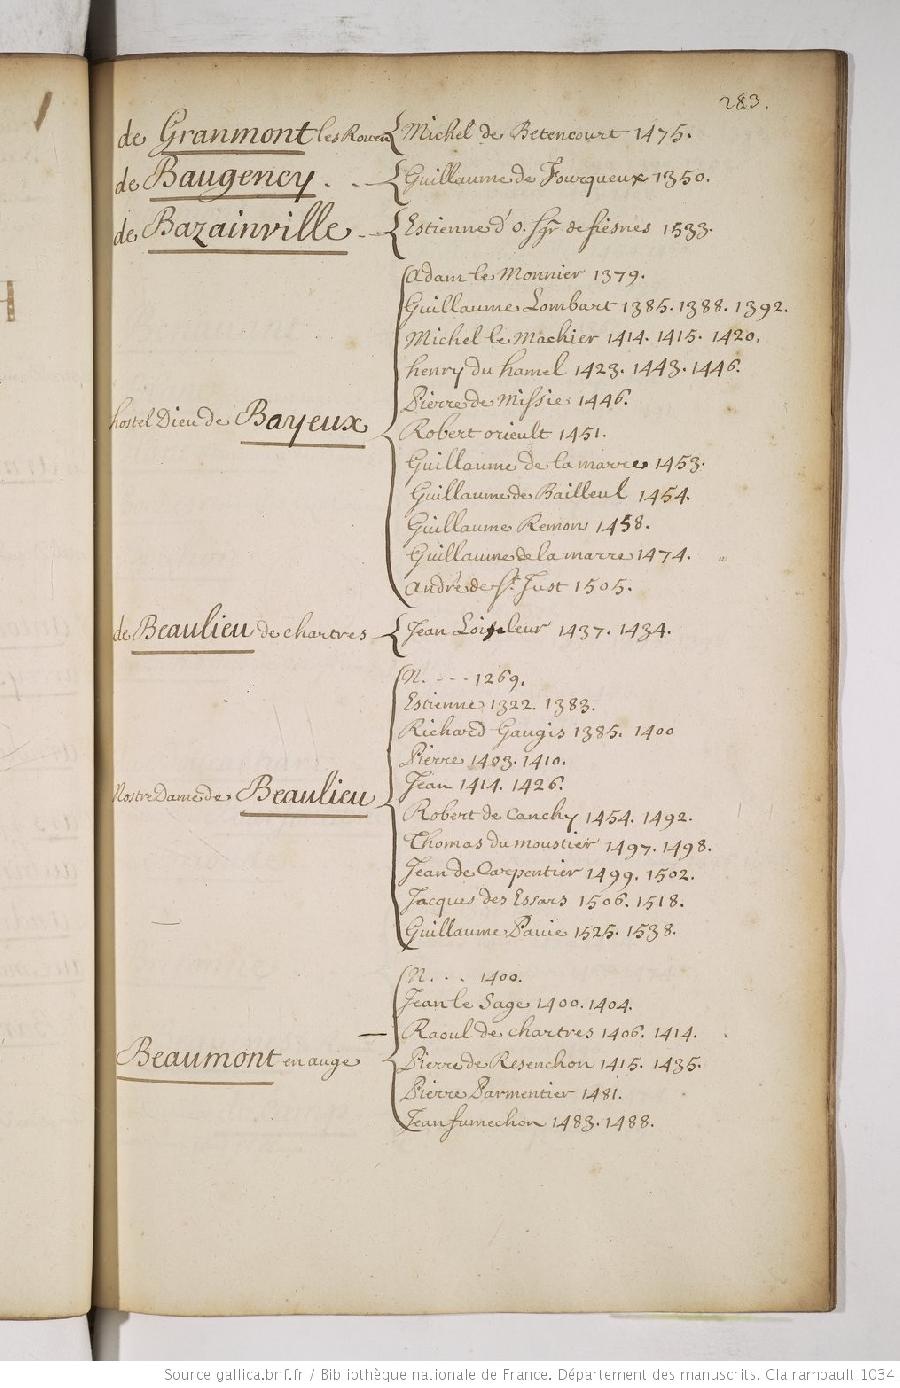 283.
de Granmont les Rouen Michel de Betencourt 1475.
de Baugency . . Guillaume de Fourqueux 1350.
de Bazainville Estienne d'o. sgr de fiesnes 1533.
Adam le Monnier 1379.
Guillaume Lombart 1385. 1388. 1392.
Michel le Machier 1414. 1415. 1420.
henry du hamel 1423. 1443. 1446.
Pierre de Missie 1446.
hostel Dieu de Bayeux
Robert orieult 1451.
Guillaume de la marre 1453.
Guillaume de Bailleul 1454.
Guillaume Remon 1458.
Guillaume de la marre 1474.
André de St. Just 1505.
de Beaulieu de chartres Jean Loiseleur 1437. 1434.
N. --- 1269.
Estienne 1322. 1383.
Richard Gaugis 1385. 1400
Pierre 1403. 1410.
Jean 1414. 1426.
Nostre Dame de Beaulieu
Robert de Canchy 1454. 1492.
Thomas du moustier 1497. 1498.
Jean de Carpentier 1499. 1502.
Jacques des Essars 1506. 1518.
Guillaume Pavie 1525. 1538.
N. . . 1400.
Jean le Sage 1400. 1404.
Raoul de chartres 1406. 1414.
Beaumont en auge
Pierre de Resenchon 1415. 1435.
Pierre Parmentier 1481.
Jean fumechon 1483. 1488.
Source gallica.bnf.fr / Bibliothèque nationale de France. Département des manuscrits. Clairambault 1034